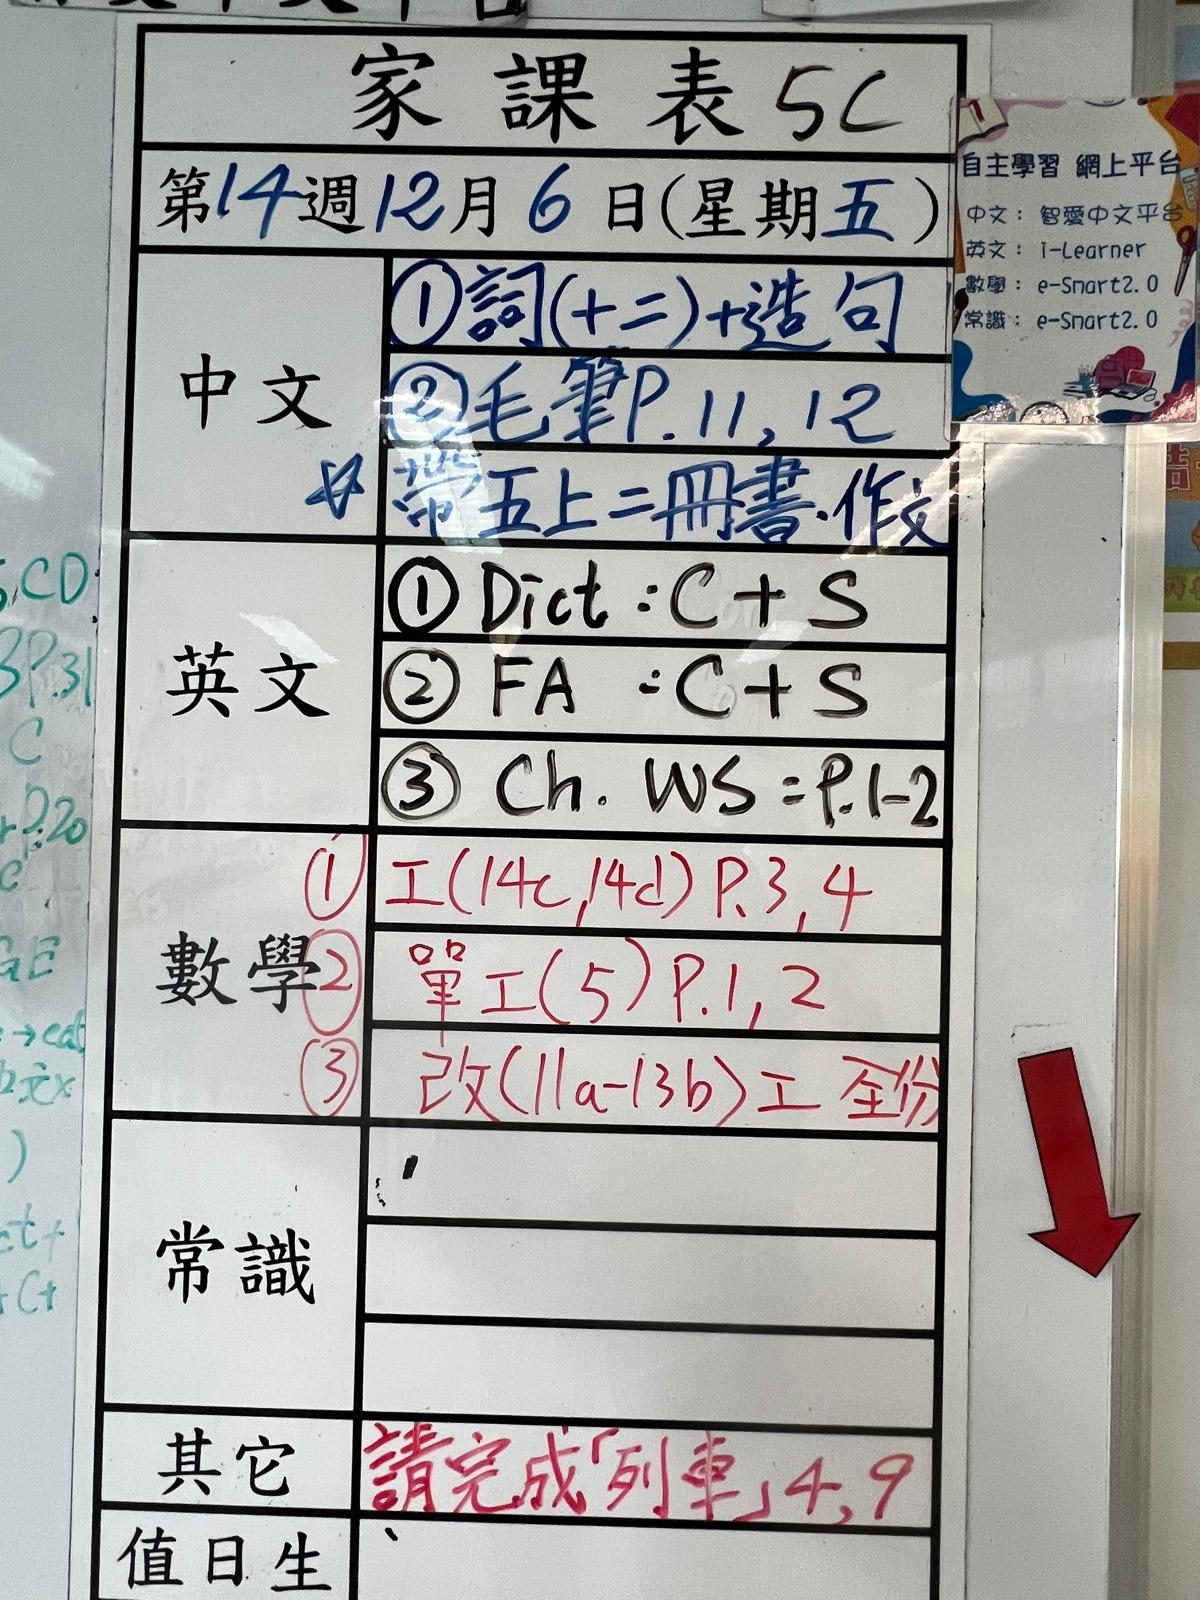 家課表 5C
第14週12月6日(星期五)
中文
①詞(十二)+造句
②毛筆P.11,12
☆帶五上二冊書.作文
英文
①Dict:C+S
②FA :C+S
③Ch. WS:P.1-2
數學
①工(14c,14d)P.3,4
②單工(5)P.1,2
③改(11a-13b)工全份
常識
其它
請完成「列車」4,9
值日生
自主學習 網上平台
中文: 智愛中文平台
英文: i-Learner
數學: e-Smart2.0
常識: e-Smart2.0
CD
3P.31
C
P.20
C
GE
→cat
文x
)
ct+
+C+